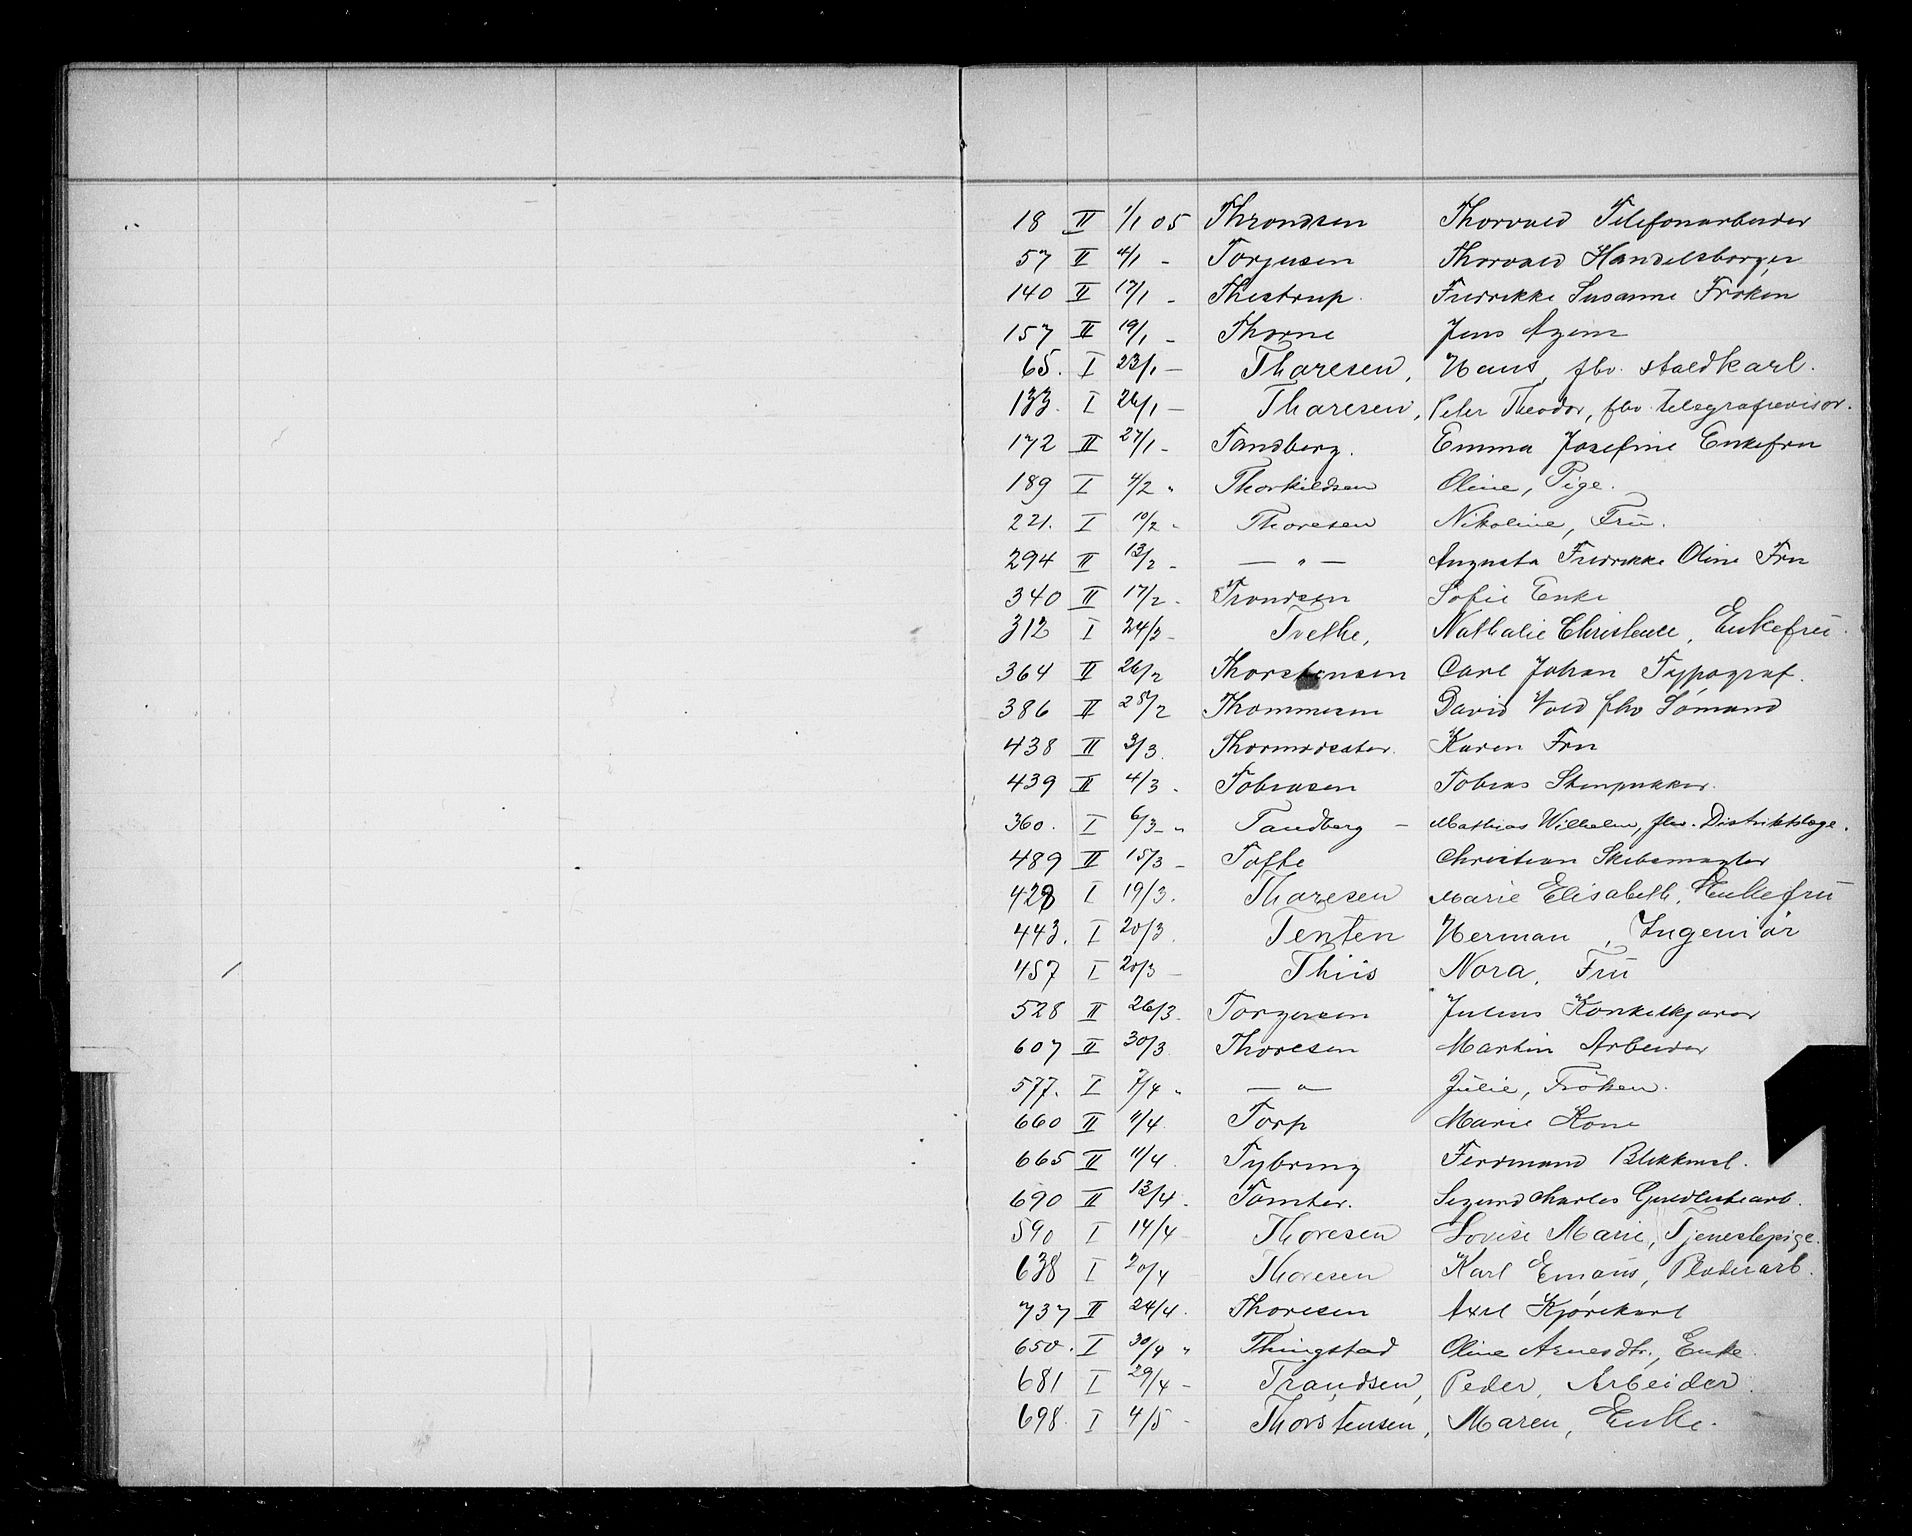 18 II 1/1 05 Throndsen Thorvald Telefonarbeider
57 II 4/1 - Torjusen Thorvald Handelsborger
140 II 17/1 - Thestrup. Fredrikke Susanne Frøken
157 II 19/1 - Thorne Jens Agent
65. I 23/1 - Thoresen, Hans, fhv. staldkarl.
133. I 26/1 - Thoresen, Peter Theodor, fhv. telegrafrevisor.
172 II 27/1 - Tandberg. Emma Josefine Enkefru
189 I 4/2 " Thorkildsen Oline, Pige.
221. I 10/2 - Thoresen Nikoline, Fru.
294 II 13/2 - — " — Augusta Fredrikke Oline Fru
340 II 17/2 - Trondsen Sofie Enke
312 I 24/2 - Tvethe, Nathalie Christence, Enkefru.
364 II 26/2 Thorstensen Carl Johan Typograf.
386 II 28/2 Thommesen David Vold fhv Sømand
438 II 3/3. Thormodsæter. Karen Fru
439 II 4/3 - Tobiasen Tobias Stenpukker.
360. I 6/3 - " Tandberg - Mathias Wilhelm, fhv. Distriktslæge.
489 II 15/3 - Tofte Christian Skibsmægler
428 I 19/3. Thoresen Marie Elisabeth, Enkefru
443. I 20/3. Tenten Herman, Ingeniør
457 I 20/3 - Thiis Nora, Fru
528 II 26/3. Torgersen Julius Konkelkjører
607 II 30/3. Thoresen Martin Arbeider
577. I 7/4 " — " — Julie, Frøken.
660 II 11/4. Torp Marie Kone
665 II 11/4. Tybring Ferdinand Blikkensl.
690 II 13/4. Tomter. Sigurd Charles Guldlistearb.
590 I 14/4 - Thoresen Lovise Marie, Tjenestepige.
638 I 20/4 - Thoresen Karl Emaus, Pladerarb.
737 II 24/4. Thoresen Axel Kjørekarl
650. I 30/4 " Thingstad Oline Arnesdtr., Enke.
681 I 29/4 - Trandsen, Peder, Arbeider.
698. I 4/5 - Thorstensen, Maren, Enke.